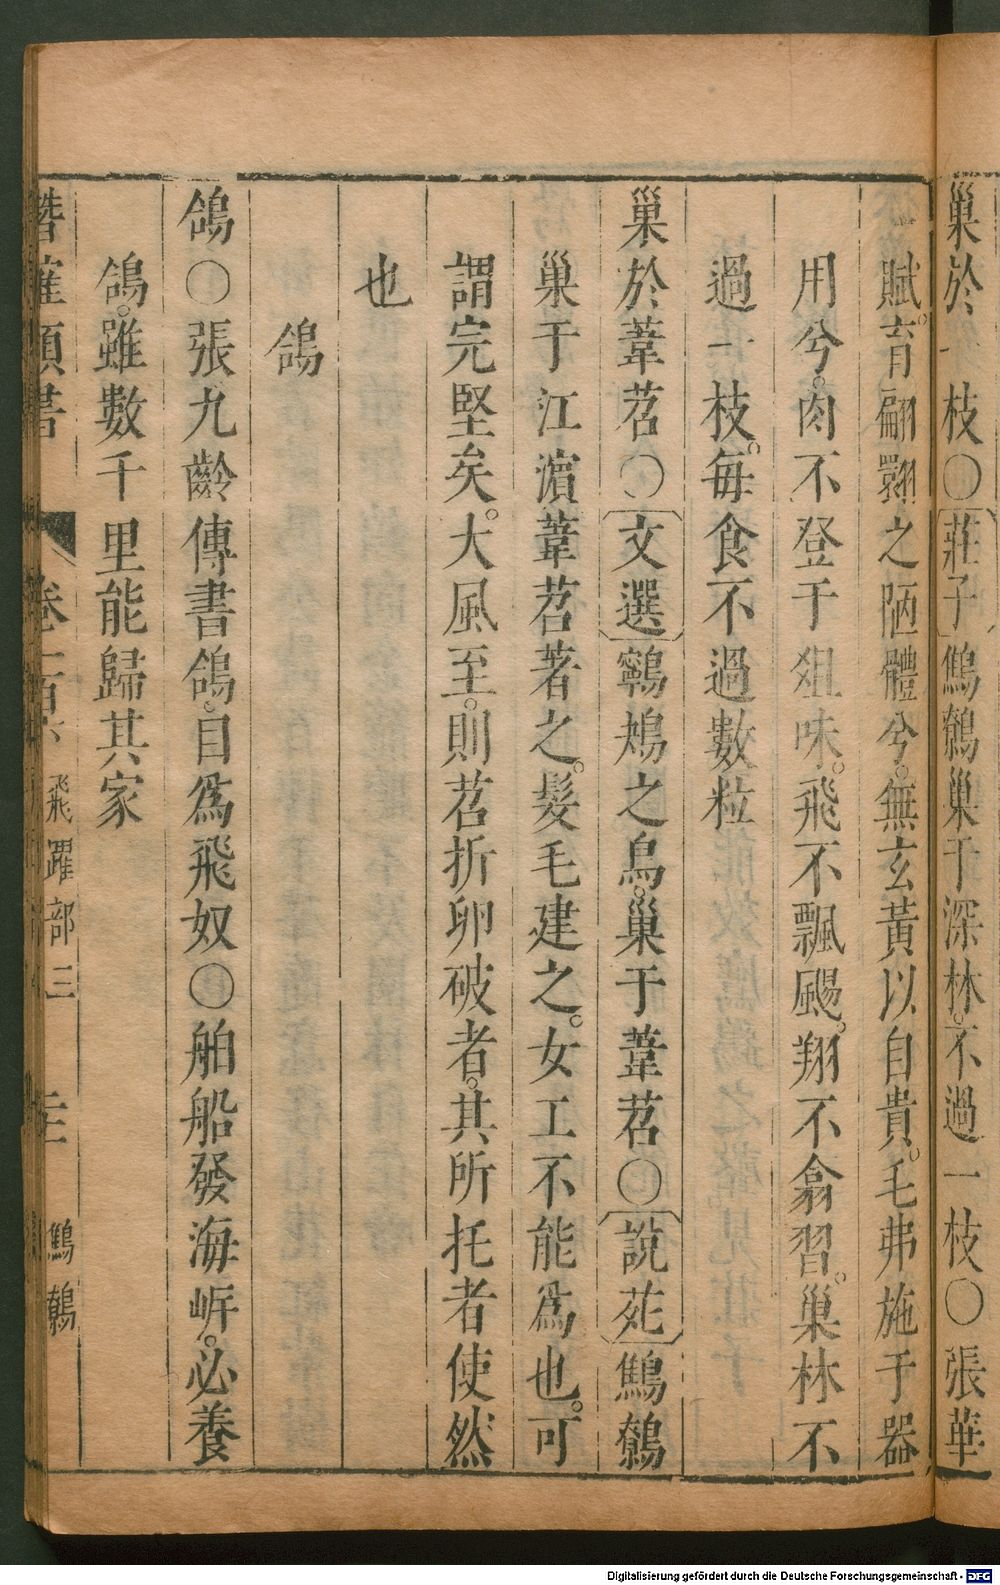 巢於一枝○莊子鷦鷯巢于深林。不過一枝○張華
賦。育翩翾之陋體兮。無玄黃以自貴。毛弗施于器
用兮。肉不登于俎味。飛不飄颺。翔不翕習。巢林不
過一枝。每食不過數粒
巢於葦苕○文選鸋鴂之鳥。巢于葦苕○說苑鷦鷯
巢于江濵葦苕著之。髮毛建之。女工不能爲也。可
謂完堅矣。大風至。則苕折卵破者。其所托者使然
也
鴿
鴿○張九齡傳書鴿。目爲飛奴○舶船發海㟁。必養
鴿。雖數千里能歸其家
潛確類書 卷一百 飛躍部三 鷦鷯
Digitalisierung gefördert durch die Deutsche Forschungsgemeinschaft - DFG